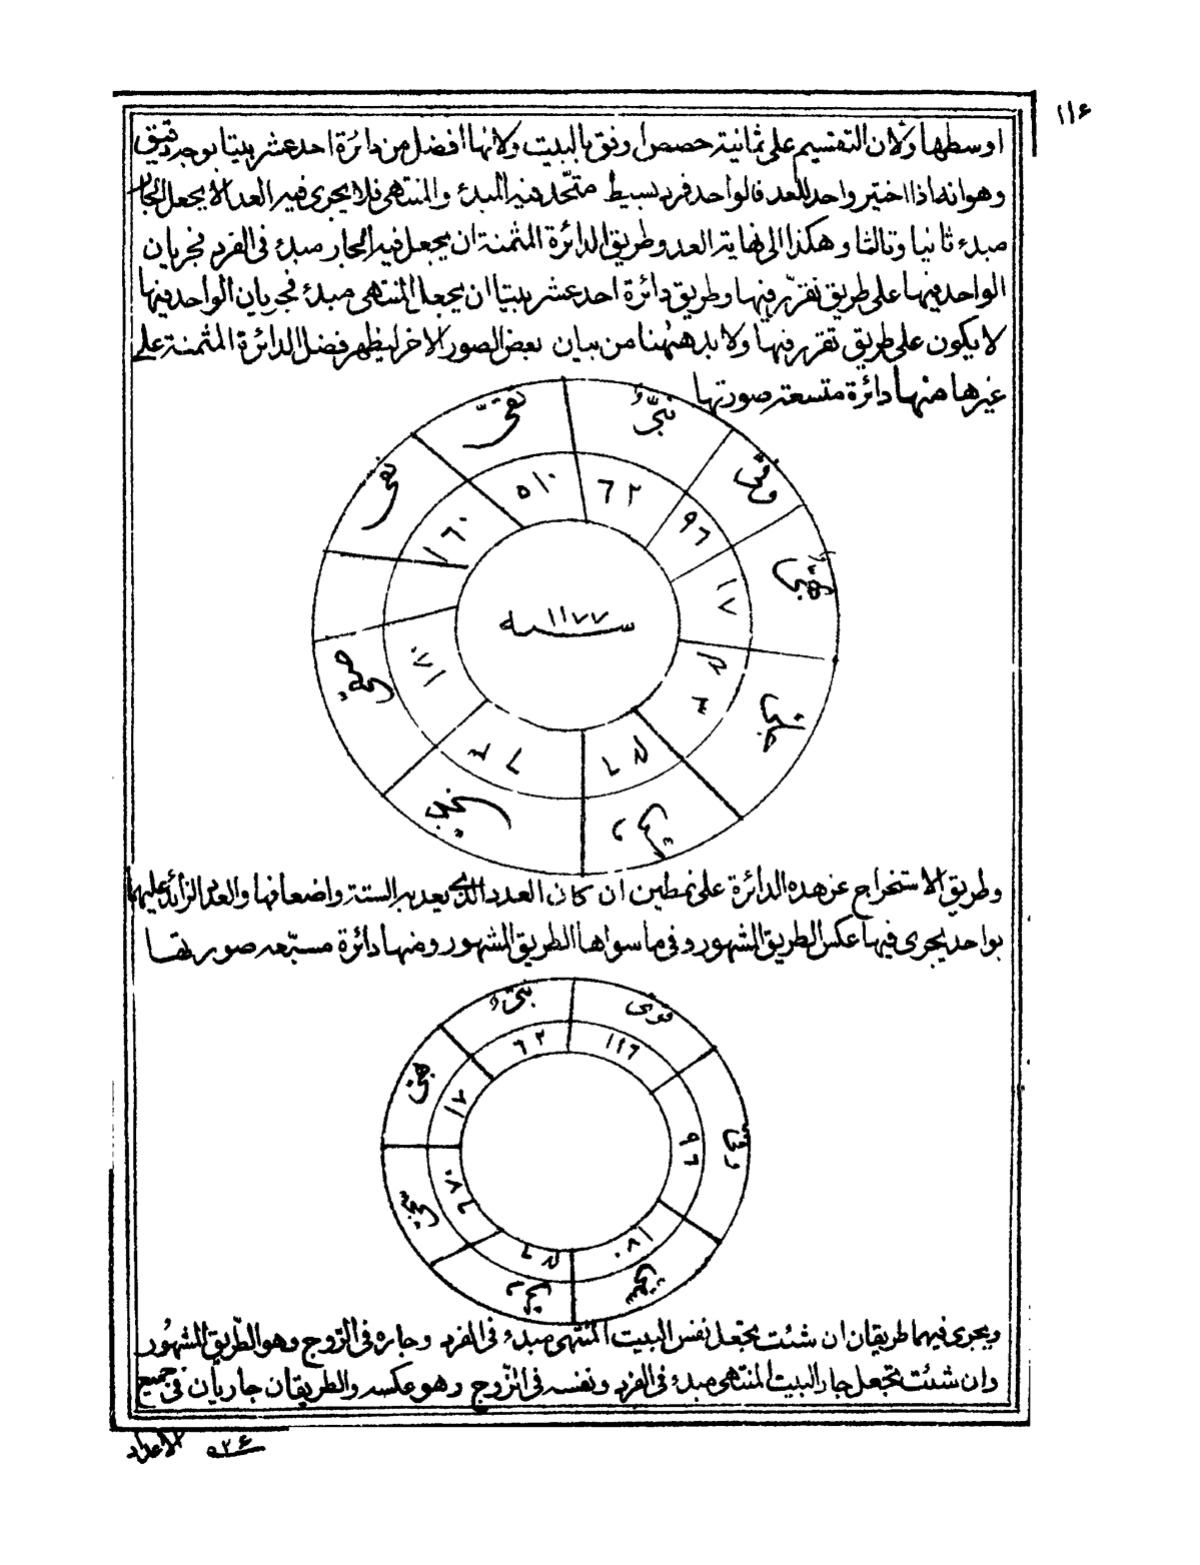 ١١٤
اوسطها ولان التقسيم على ثمانية حصص اوفق بالبيت ولانها افضل من دائرة احد عشر بيتا بوجد دقيق
وهو انه اذا اختير واحد للعد فالواحد فرد بسيط متحد فيه المبدء والمنتهى فلا يجرى فيه العد الا بجعل الجار
مبدء ثانيا وثالثا وهكذا الى نهاية العد وطريق الدائرة المثمنة ان يجعل فيه الجار مبدء فى الفرد فجريان
الواحد فيها على طريق تقرر فيها وطريق دائرة احد عشر بيتا ان يجعل المنتهى مبدء فجريان الواحد فيها
لا يكون على طريق تقرر فيها ولا بد ههنا من بيان بعض الصور الاخر ليظهر فضل الدائرة المثمنة على
غيرها منها دائرة متسعة صورتها
نبىّ
٦٢
وفى
٩٦
١٧
٣
٦
١٧١
١٦٠
نقى
٥١٠
سنه ١١٧٧
وطريق الاستخراج عن هذه الدائرة على نمطين ان كان العدد الذى يعد به الستة واضعافها والعدد الزائد عليها
بواحد يجرى فيها عكس الطريق المشهور وفى ما سواها الطريق المشهور ومنها دائرة مسبّعه صورتها
قوى
١٢٦
وفى
٩٦
١٨٠
٦٢
١٧
ويجرى فيهما طريقان ان شئت تجعل نفس البيت المنتهى مبدء فى الفرد وجاره فى الزوج وهو الطريق المشهور
وان شئت تجعل جار البيت المنتهى مبدء فى الفرد ونفسه فى الزوج وهو عكسه والطريقان جاريان فى جميع
الاعداد